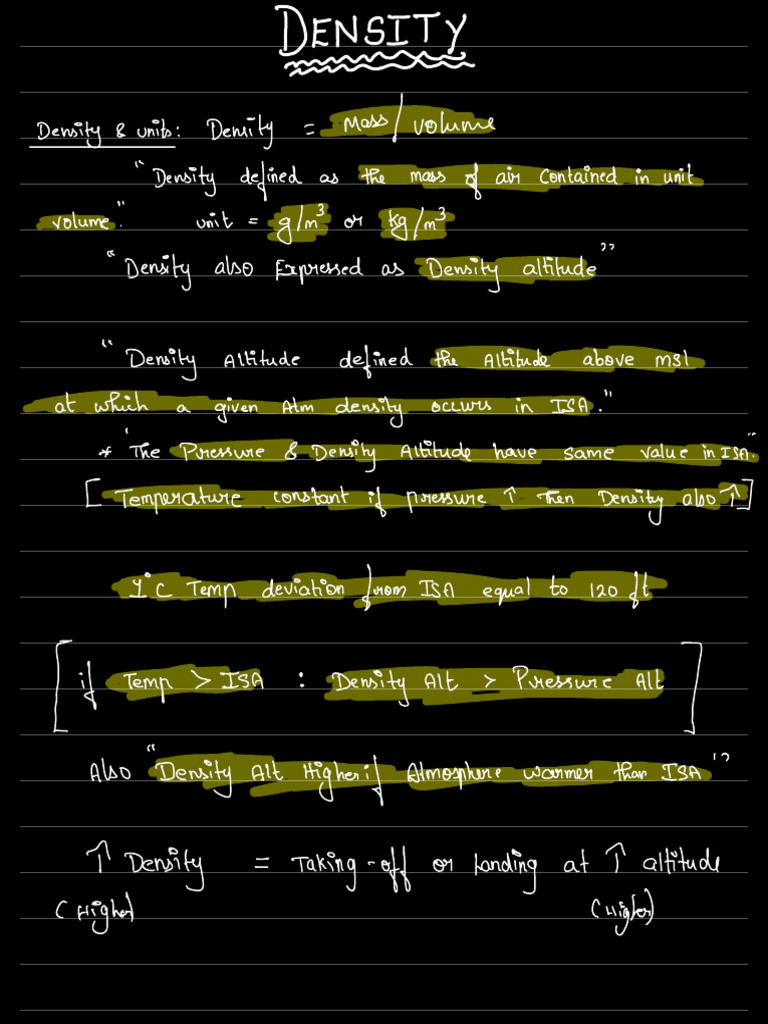 DENSITY
Density & units: Density = Mass / volume
"Density defined as the mass of air contained in unit
volume." unit = g/m³ or kg/m³
"Density also Expressed as Density altitude"
"Density Altitude defined the Altitude above msl
at which a given Atm density occurs in ISA."
* 'The Pressure & Density Altitude have same value in ISA."
[Temperature constant if pressure ↑ Then Density also ↑]
1°C Temp deviation from ISA equal to 120 ft
[if Temp > ISA : Density Alt > Pressure Alt]
Also "Density Alt Higher if Atmosphere warmer than ISA"
↑ Density = Taking-off or Landing at ↑ altitude
(Higher) (Higher)